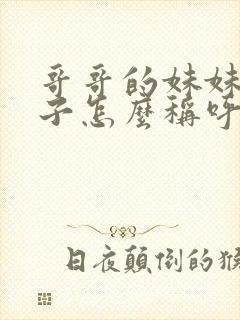 哥哥的妹妹
子怎麼稱呼
日夜顛倒的猴